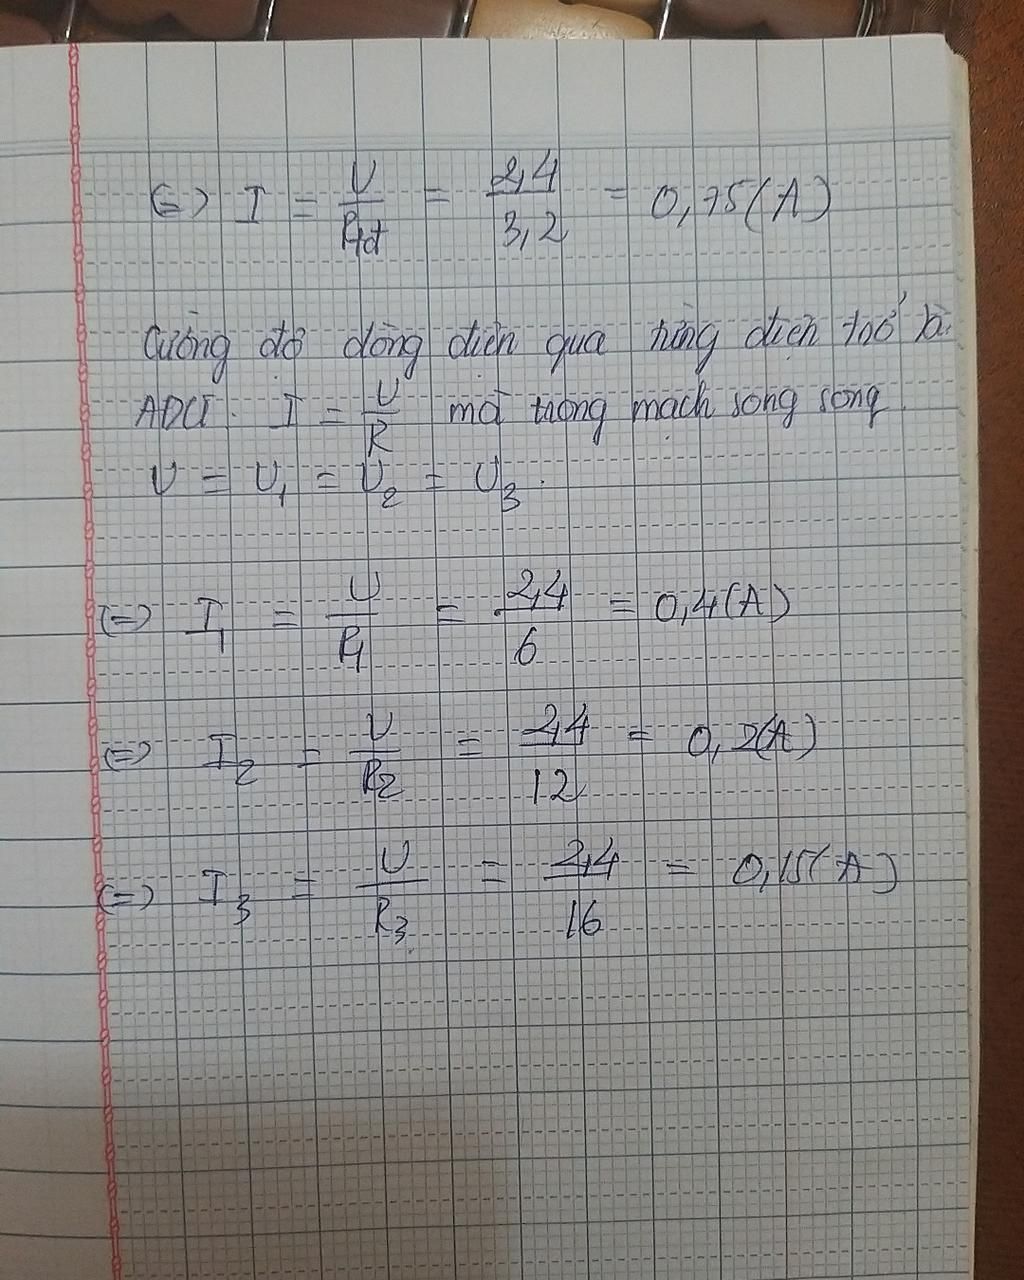 (=) I = U/Rtđ = 2,4/3,2 = 0,75(A)
Cường độ dòng điện qua từng điện trở là:
ADCT: I = U/R mà trong mạch song song
U = U₁ = U₂ = U₃.
(=) I₁ = U/R₁ = 2,4/6 = 0,4(A)
(=) I₂ = U/R₂ = 2,4/12 = 0,2(A)
(=) I₃ = U/R₃ = 2,4/16 = 0,15(A)